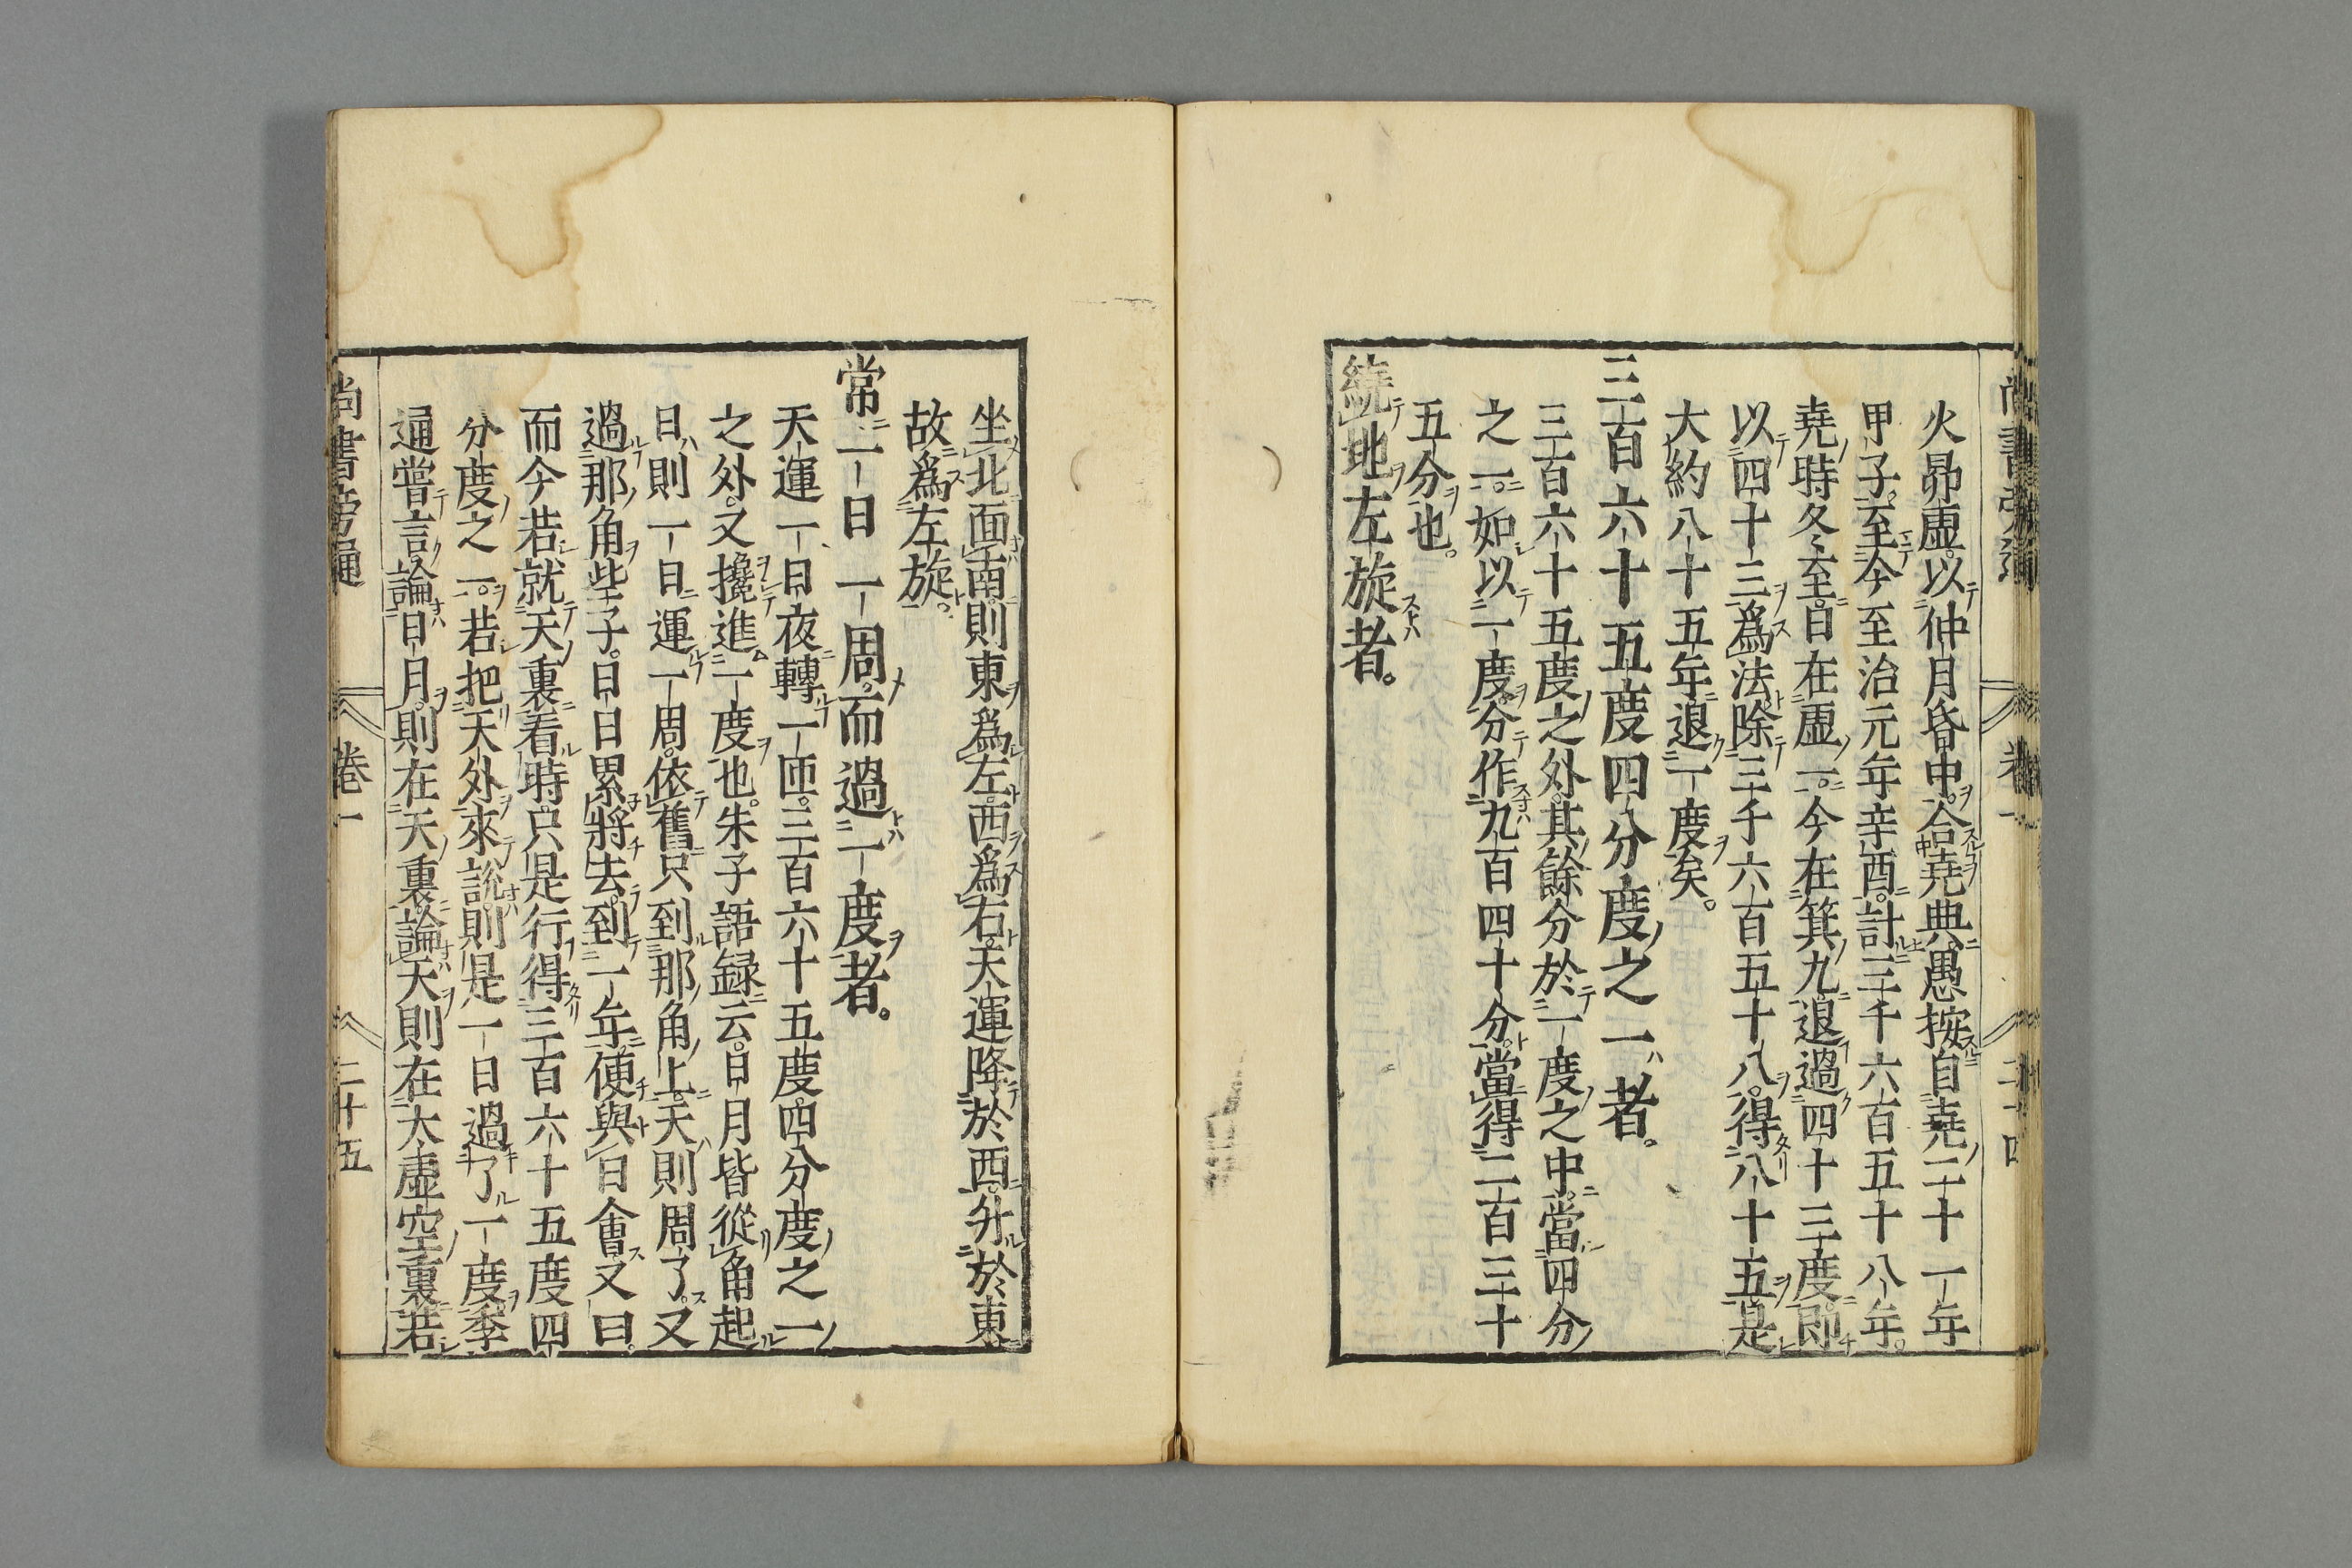 火昴虛以仲月昏中合堯典愚按自堯二十一年
甲子至今至治元年辛酉計三千六百五十八年
堯時冬至日在虛一今在箕九退過四十三度即
以四十三爲法除三千六百五十八得八十五是
大約八十五年退一度矣
三百六十五度四分度之一者
三百六十五度之外其餘分於一度之中當四分
之一如以一度分作九百四十分當得二百三十
五分也
繞地左旋者
坐北面南則東爲左西爲右天運降於西升於東
故爲左旋
常一日一周而過一度者
天運一日夜轉一匝三百六十五度四分度之一
之外又攙進一度也朱子語録云日月皆從角起
日則一日運一周依舊只到那角上天則周了又
過那角些子日日累將去到一年便與日會又曰
而今若就天裏看時只是行得三百六十五度四
分度之一若把天外來說則是一日過了一度季
通嘗言論日月則在天裏論天則在太虛空裏若
尚書旁通 卷一 二十五